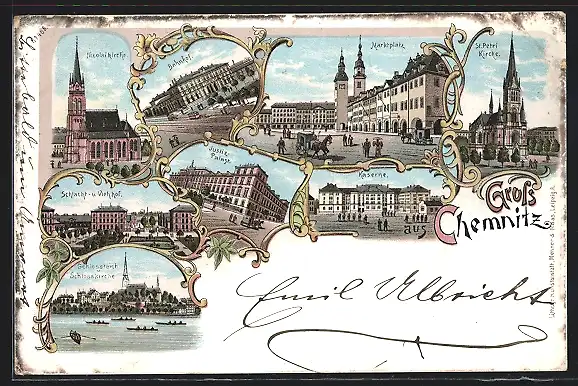 Nicolaikirche.
Bahnhof.
Marktplatz.
St. Petri
Kirche.
Justiz
Palast.
Kaserne.
Schlacht- u. Viehhof.
Gruß
aus
Chemnitz.
Schlossteich
Schlosskirche
Emil Ulbricht